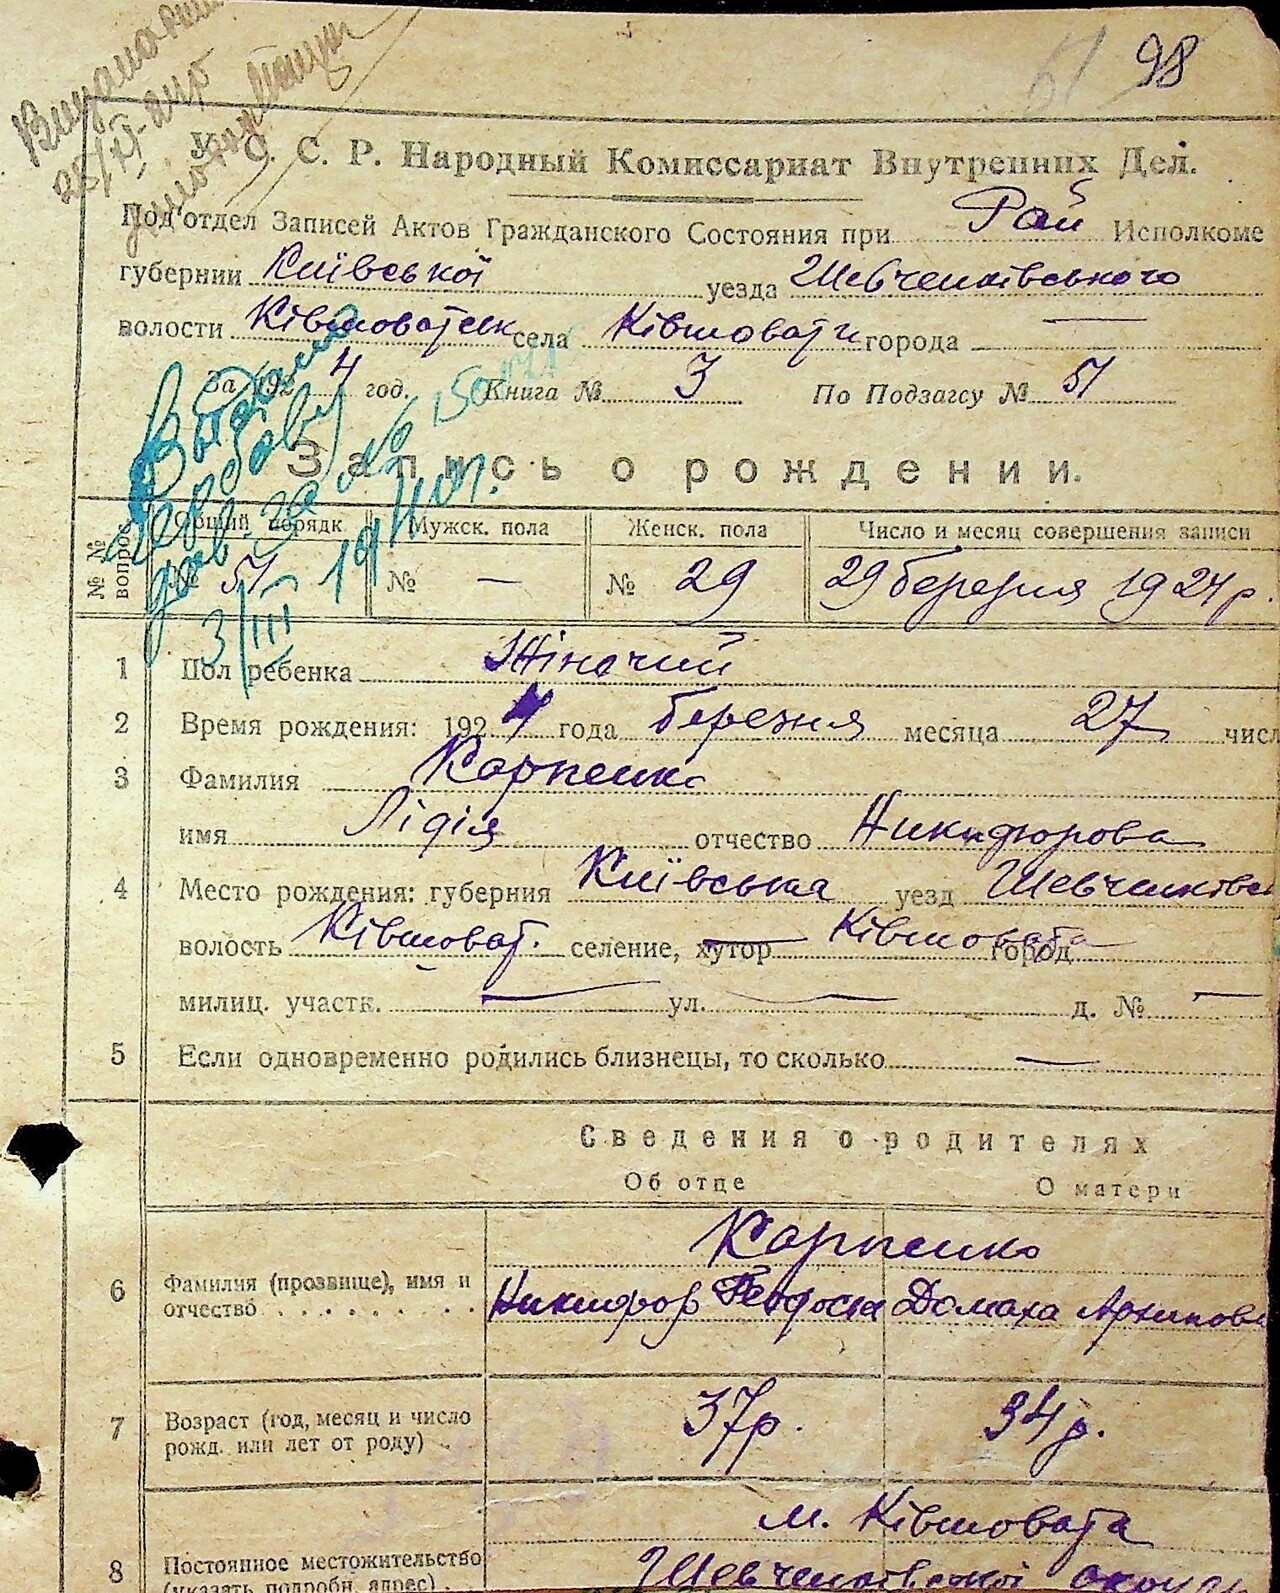 98
51
У. С. С. Р. Народный Комиссариат Внутренних Дел.
Под'отдел Записей Актов Гражданского Состояния при Рай Исполкоме
губернии Київської уезда Шевченківського
волости Ківшоватськ села Ківшовати города —
За 1924 год. Книга № 3 По Подзагсу № 51
Запись о рождении.
№ № вопрос. Общий порядк. Мужск. пола Женск. пола Число и месяц совершения записи
№ 51 № — № 29 29 березня 1924 р.
3/III 1941 г.
1 Пол ребенка Жіночий
2 Время рождения: 1924 года березня месяца 27 числ
3 Фамилия Карпенко
имя Лідія отчество Никифорова
4 Место рождения: губерния Київська уезд Шевченківсь
волость Ківшоват. селение, хутор Ківшовата город
милиц. участк. — ул. — д. № —
5 Если одновременно родились близнецы, то сколько —
Сведения о родителях
Об отце О матери
Карпенко
6 Фамилия (прозвище), имя и
отчество . . . . . . . . . Никифор Феодосів Домаха Архипов
7 Возраст (год, месяц и число
рожд. или лет от роду) . 37 р. 34 р.
м. Ківшовата
8 Постоянное местожительство Шевченківської округ
(указать подробн. адрес) .